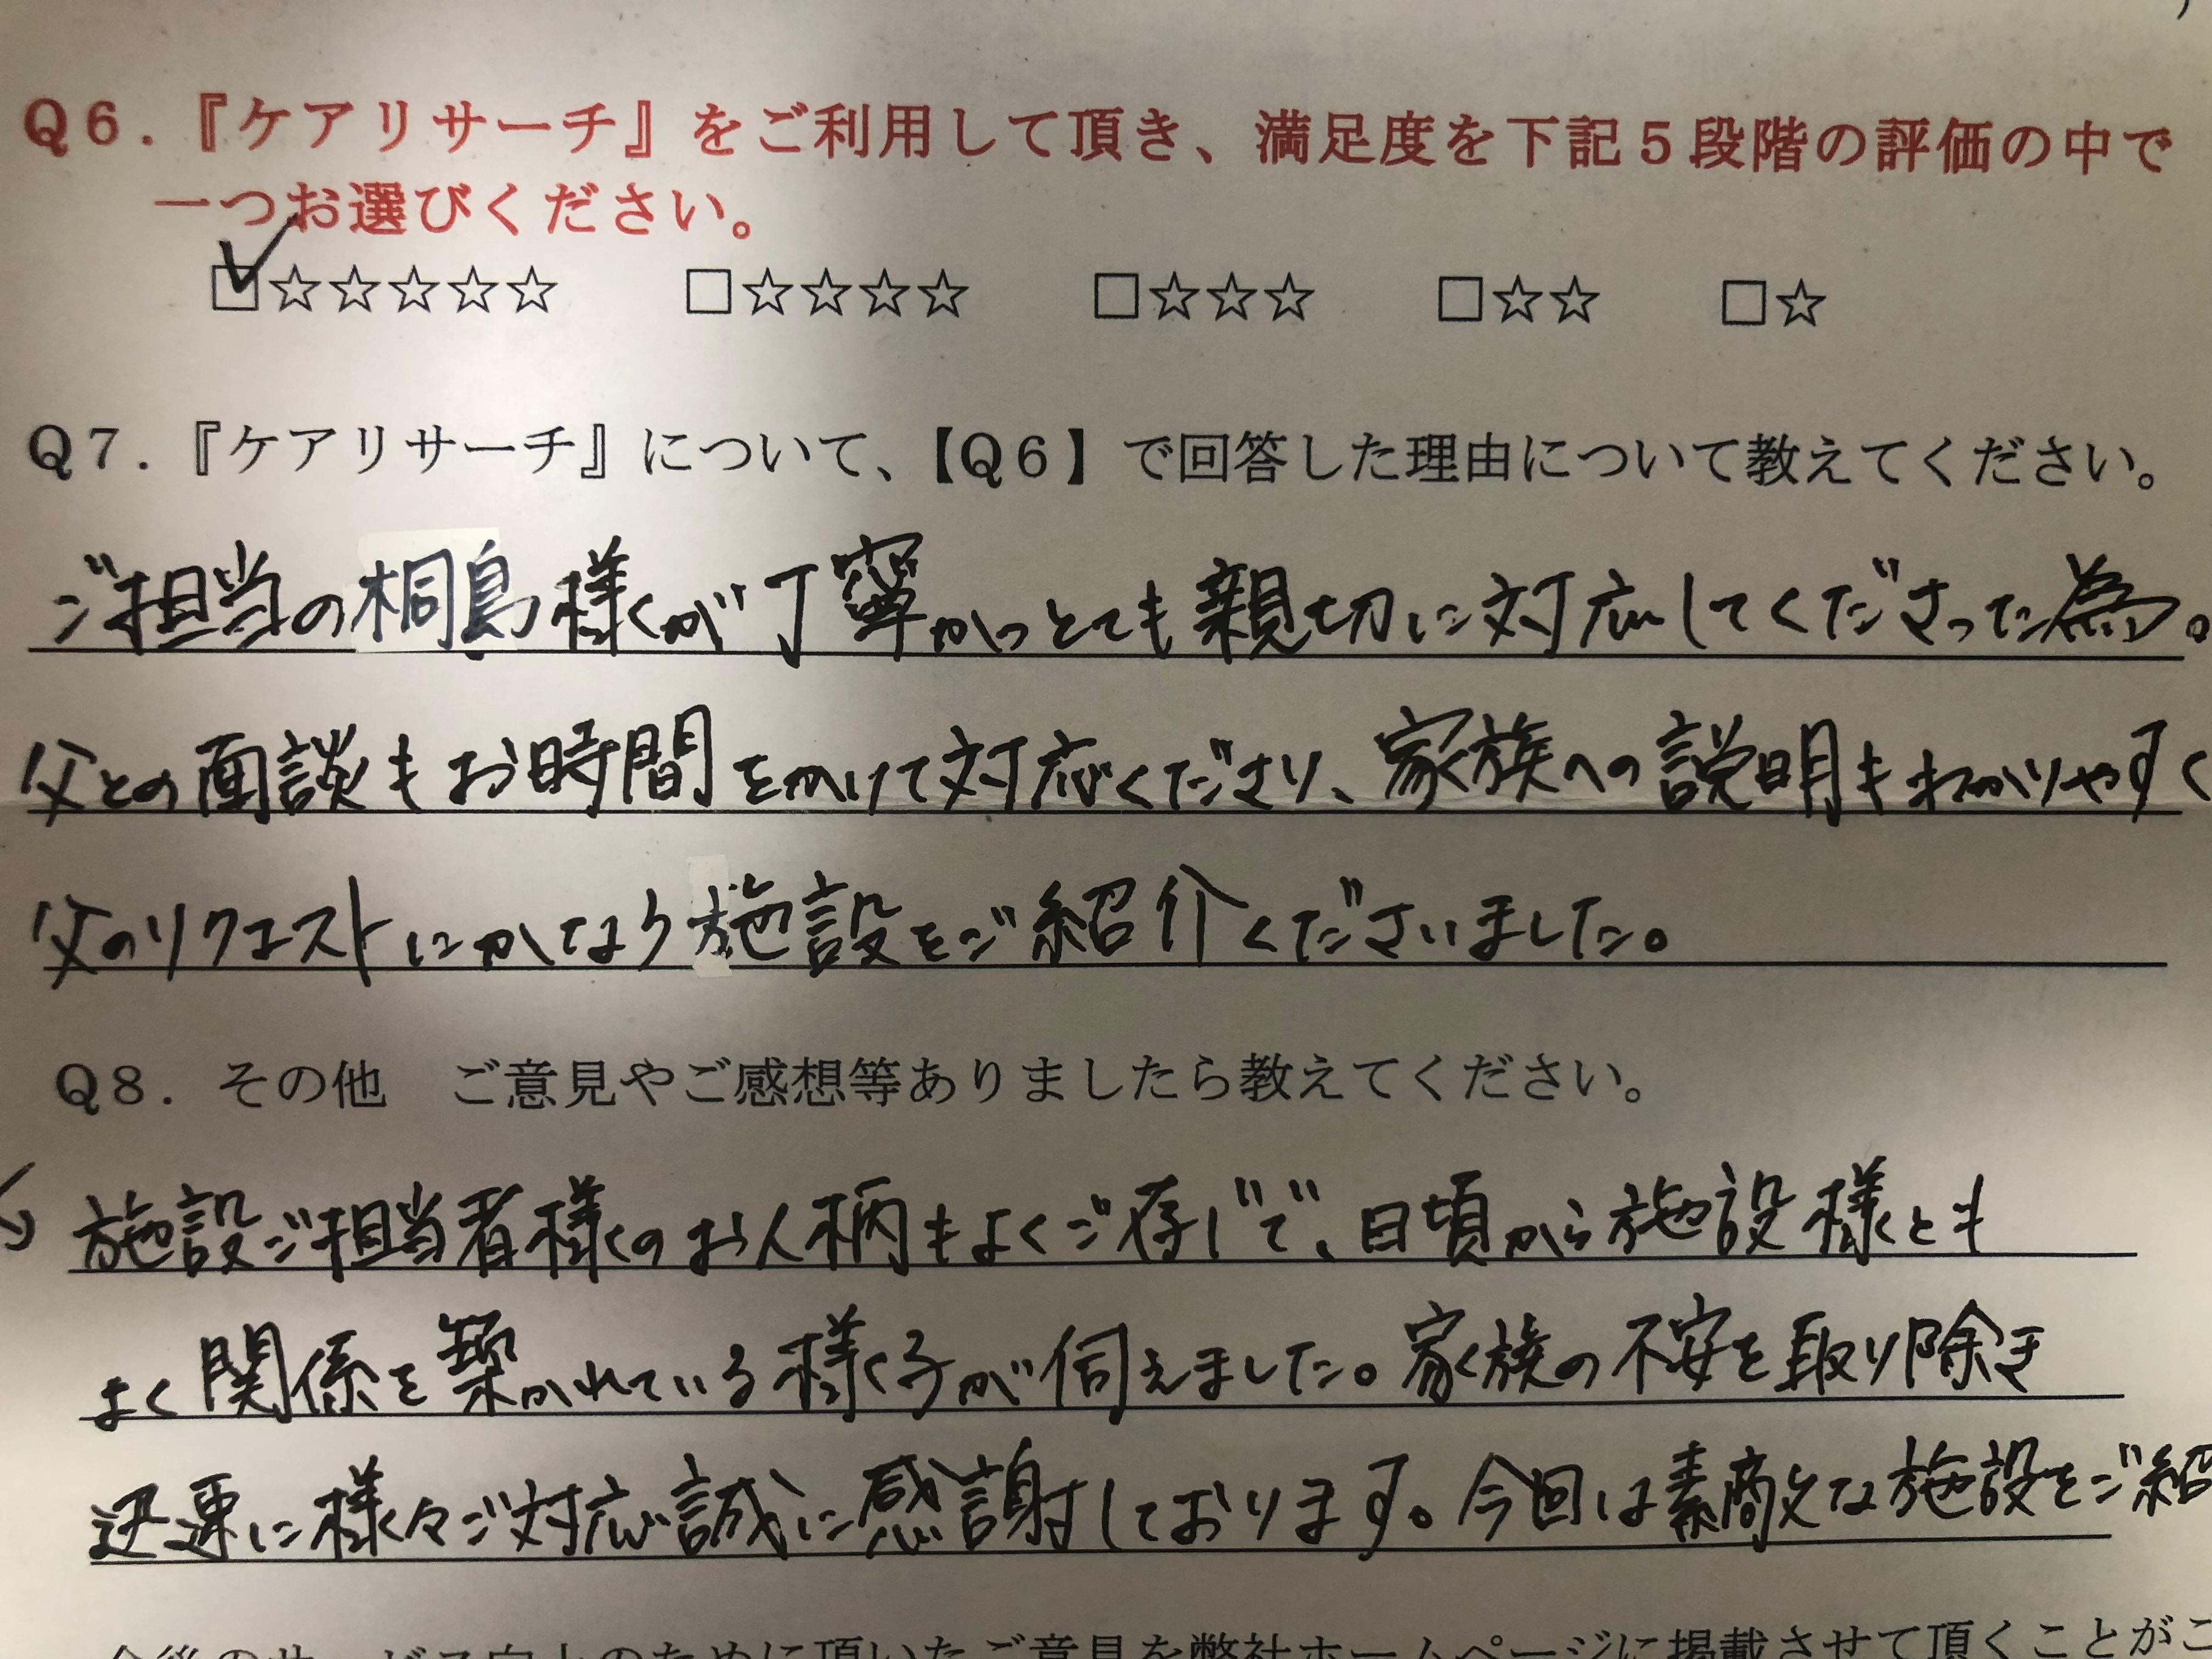 Q6.『ケアリサーチ』をご利用して頂き、満足度を下記5段階の評価の中で
一つお選びください。
☑☆☆☆☆☆ □☆☆☆☆ □☆☆☆ □☆☆ □☆
Q7.『ケアリサーチ』について、【Q6】で回答した理由について教えてください。
ご担当の桐島様が丁寧かつとても親切に対応してくださった為。
父との面談もお時間をかけて対応くださり、家族への説明もわかりやすく
父のリクエストにかなう施設をご紹介くださいました。
Q8. その他 ご意見やご感想等ありましたら教えてください。
施設ご担当者様のお人柄もよくご存じで、日頃から施設様とも
よく関係を築かれている様子が伺えました。家族の不安を取り除き
迅速に様々ご対応誠に感謝しております。今回は素敵な施設をご紹
今後のサービス向上のために頂いたご意見を弊社ホームページに掲載させて頂くことがご